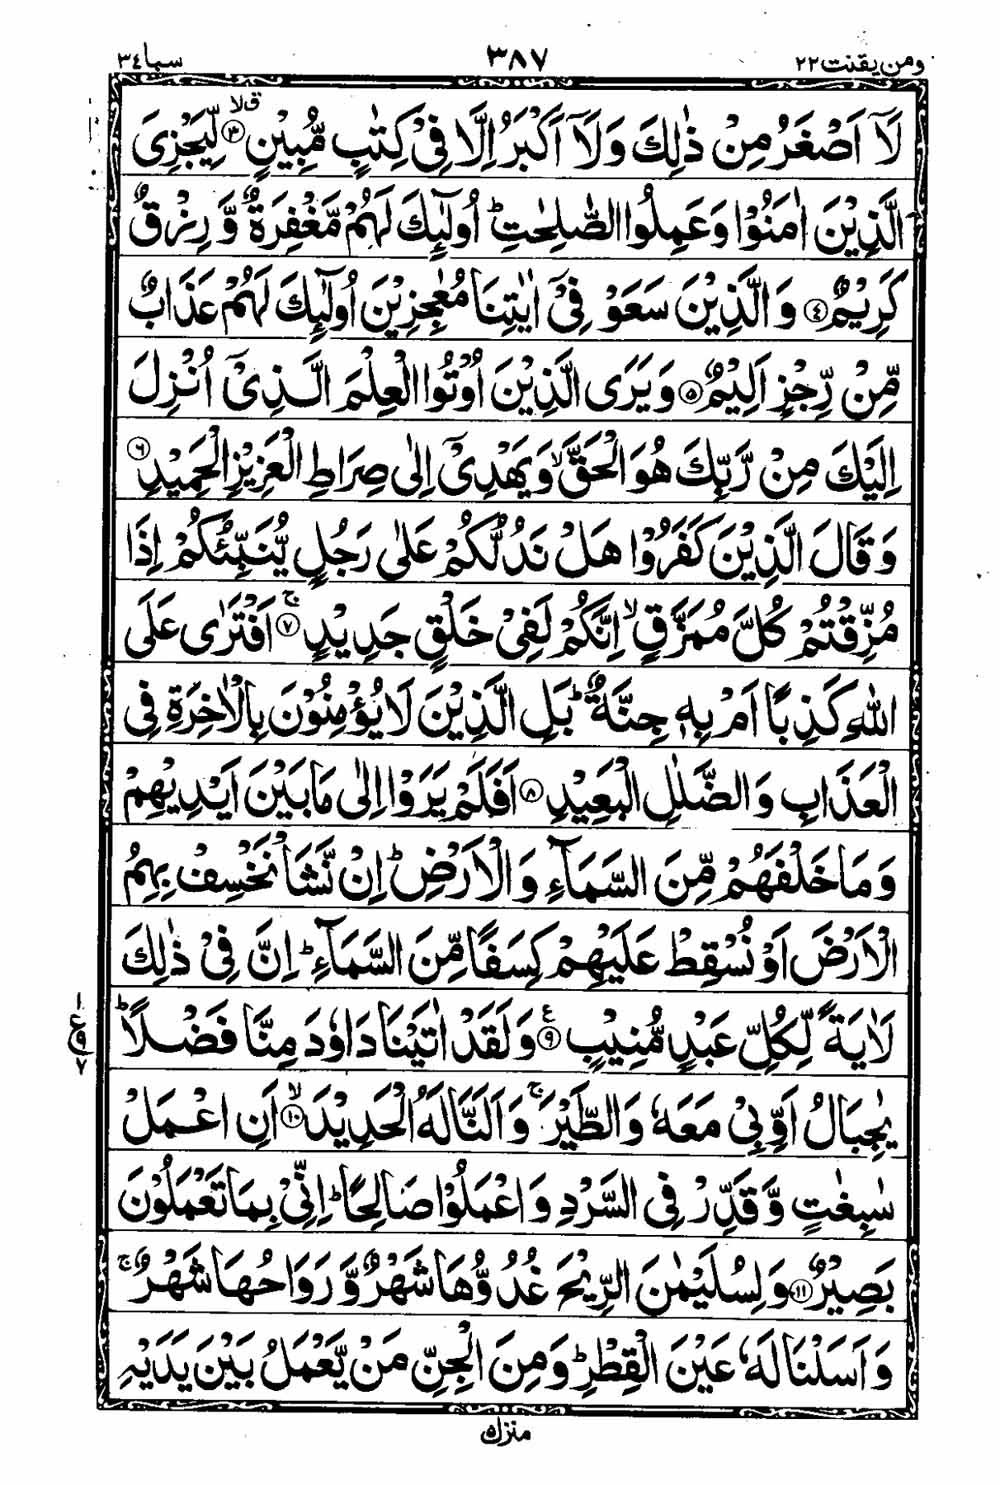 ومن يقنت ٢٢
٣٨٧
سبا ٣٤
لَاۤ اَصْغَرُ مِنْ ذٰلِكَ وَلَاۤ اَكْبَرُ اِلَّا فِیْ كِتٰبٍ مُّبِیْنٍ ۙق ﴿٣﴾ لِّیَجْزِیَ
الَّذِیْنَ اٰمَنُوْا وَعَمِلُوا الصّٰلِحٰتِ ؕ اُولٰٓئِكَ لَهُمْ مَّغْفِرَةٌ وَّ رِزْقٌ
كَرِیْمٌ ﴿٤﴾ وَالَّذِیْنَ سَعَوْ فِیْۤ اٰیٰتِنَا مُعٰجِزِیْنَ اُولٰٓئِكَ لَهُمْ عَذَابٌ
مِّنْ رِّجْزٍ اَلِیْمٌ ﴿٥﴾ وَیَرَی الَّذِیْنَ اُوْتُوا الْعِلْمَ الَّذِیْۤ اُنْزِلَ
اِلَیْكَ مِنْ رَّبِّكَ هُوَ الْحَقَّ ۙ وَیَهْدِیْۤ اِلٰی صِرَاطِ الْعَزِیْزِ الْحَمِیْدِ ﴿٦﴾
وَقَالَ الَّذِیْنَ كَفَرُوْا هَلْ نَدُلُّكُمْ عَلٰی رَجُلٍ یُّنَبِّئُكُمْ اِذَا
مُزِّقْتُمْ كُلَّ مُمَزَّقٍ ۙ اِنَّكُمْ لَفِیْ خَلْقٍ جَدِیْدٍ ۚ ﴿٧﴾ اَفْتَرٰی عَلَی
اللّٰهِ كَذِبًا اَمْ بِهٖ جِنَّةٌ ؕ بَلِ الَّذِیْنَ لَا یُؤْمِنُوْنَ بِالْاٰخِرَةِ فِی
الْعَذَابِ وَالضَّلٰلِ الْبَعِیْدِ ﴿٨﴾ اَفَلَمْ یَرَوْا اِلٰی مَا بَیْنَ اَیْدِیْهِمْ
وَمَا خَلْفَهُمْ مِّنَ السَّمَآءِ وَالْاَرْضِ ؕ اِنْ نَّشَاْ نَخْسِفْ بِهِمُ
الْاَرْضَ اَوْ نُسْقِطْ عَلَیْهِمْ كِسَفًا مِّنَ السَّمَآءِ ؕ اِنَّ فِیْ ذٰلِكَ
لَاٰیَةً لِّكُلِّ عَبْدٍ مُّنِیْبٍ ﴿٩﴾ ع وَلَقَدْ اٰتَیْنَا دَاوٗدَ مِنَّا فَضْلًا ؕ
١ ع ٩ ٧
یٰجِبَالُ اَوِّبِیْ مَعَهٗ وَالطَّیْرَ ۚ وَاَلَنَّا لَهُ الْحَدِیْدَ ۙ ﴿١٠﴾ اَنِ اعْمَلْ
سٰبِغٰتٍ وَّقَدِّرْ فِی السَّرْدِ وَاعْمَلُوْا صَالِحًا ؕ اِنِّیْ بِمَا تَعْمَلُوْنَ
بَصِیْرٌ ﴿١١﴾ وَلِسُلَیْمٰنَ الرِّیْحَ غُدُوُّهَا شَهْرٌ وَّرَوَاحُهَا شَهْرٌ ۚ
وَاَسَلْنَا لَهٗ عَیْنَ الْقِطْرِ ؕ وَمِنَ الْجِنِّ مَنْ یَّعْمَلُ بَیْنَ یَدَیْهِ
منزل ٥